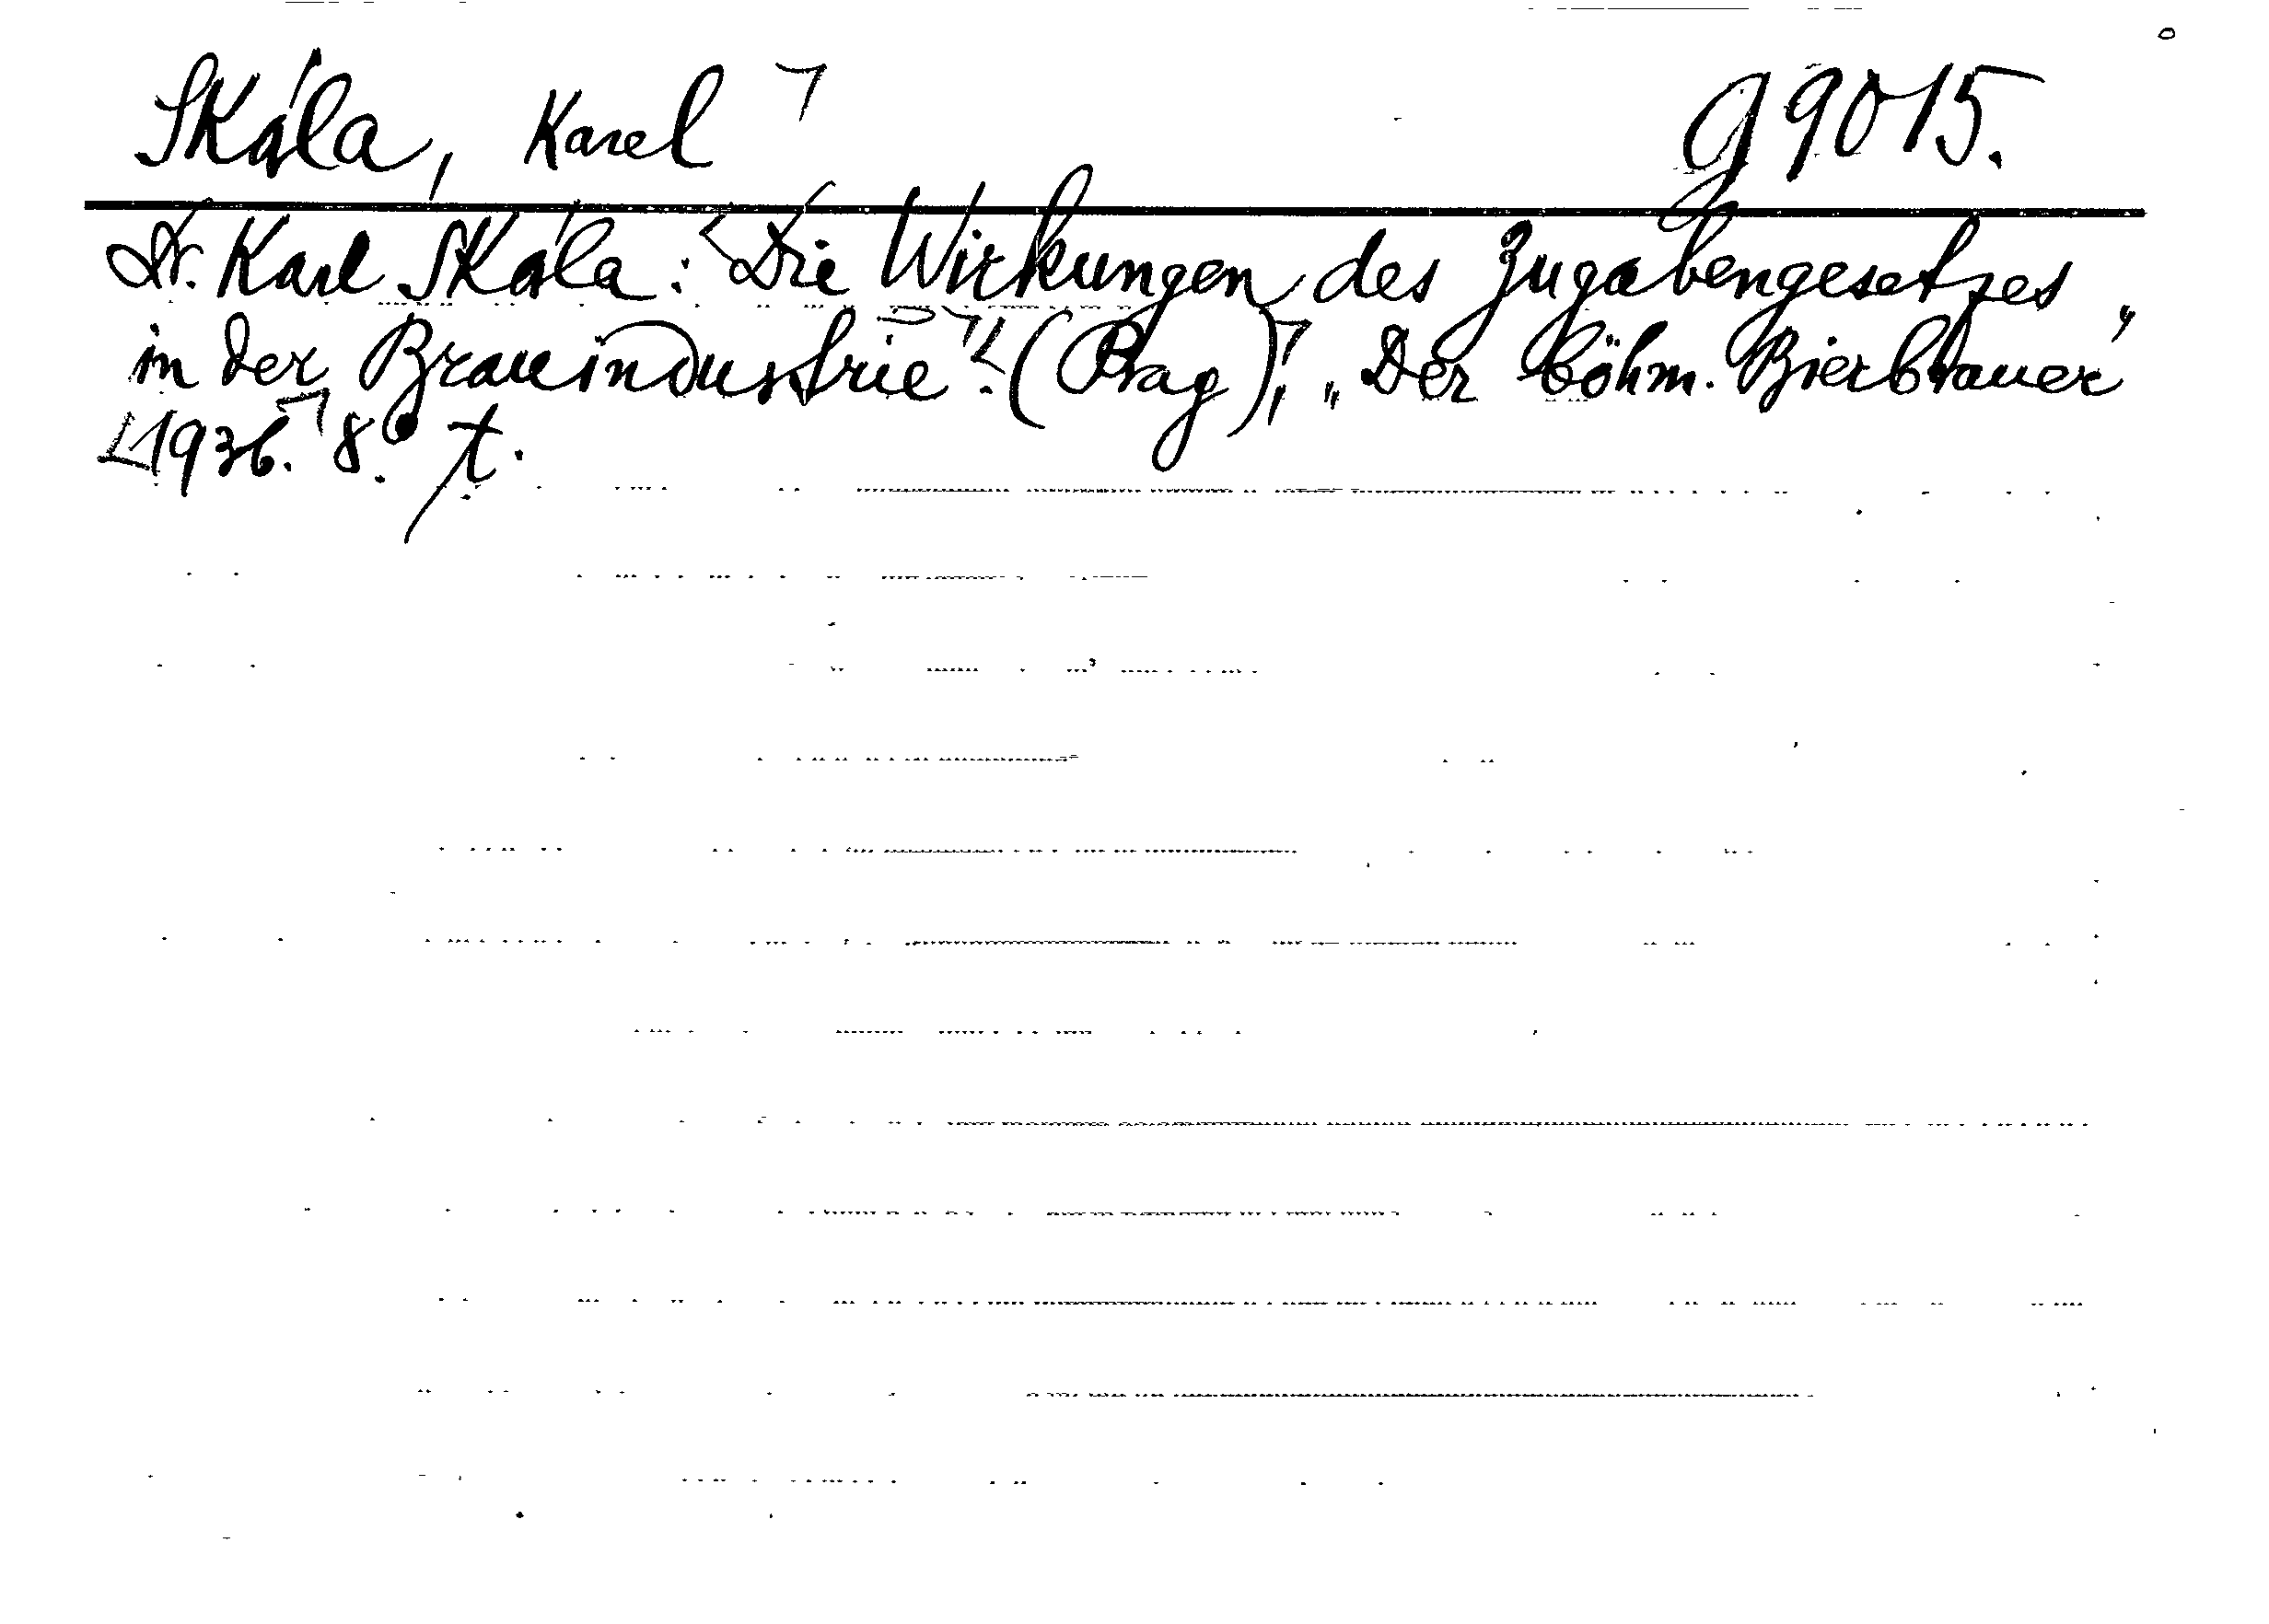 Skála, Karel g 9015.
Dr. Karl Skála: Die Wirkungen des Zugabengesetzes
in der Brauindustrie". (Prag), „Der böhm. Bierbrauer"
1936. 8° t.